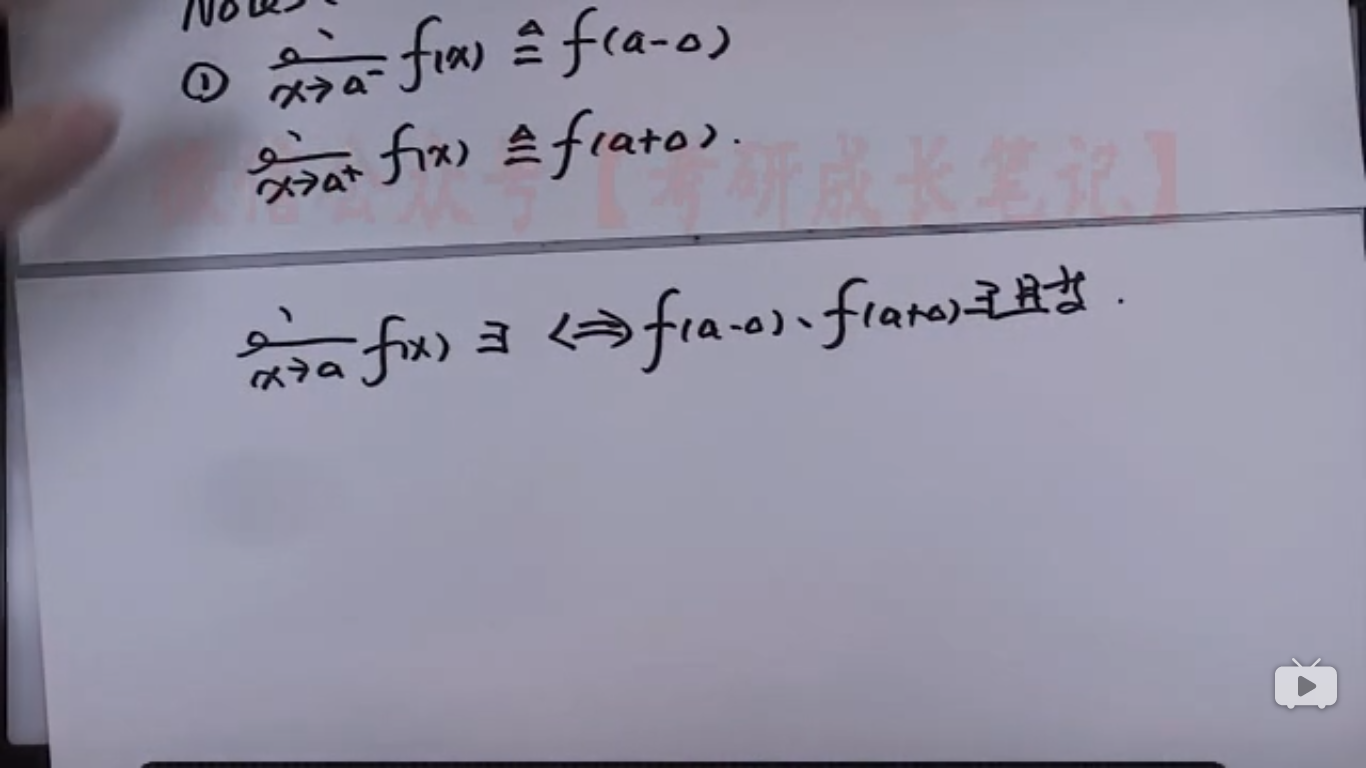 Notes:
① lim x→a⁻ f(x) ≜ f(a-0)
lim x→a⁺ f(x) ≜ f(a+0).
微信公众号【考研成长笔记】
lim x→a f(x) ∃ ⟺ f(a-0)、f(a+0)∃且等.